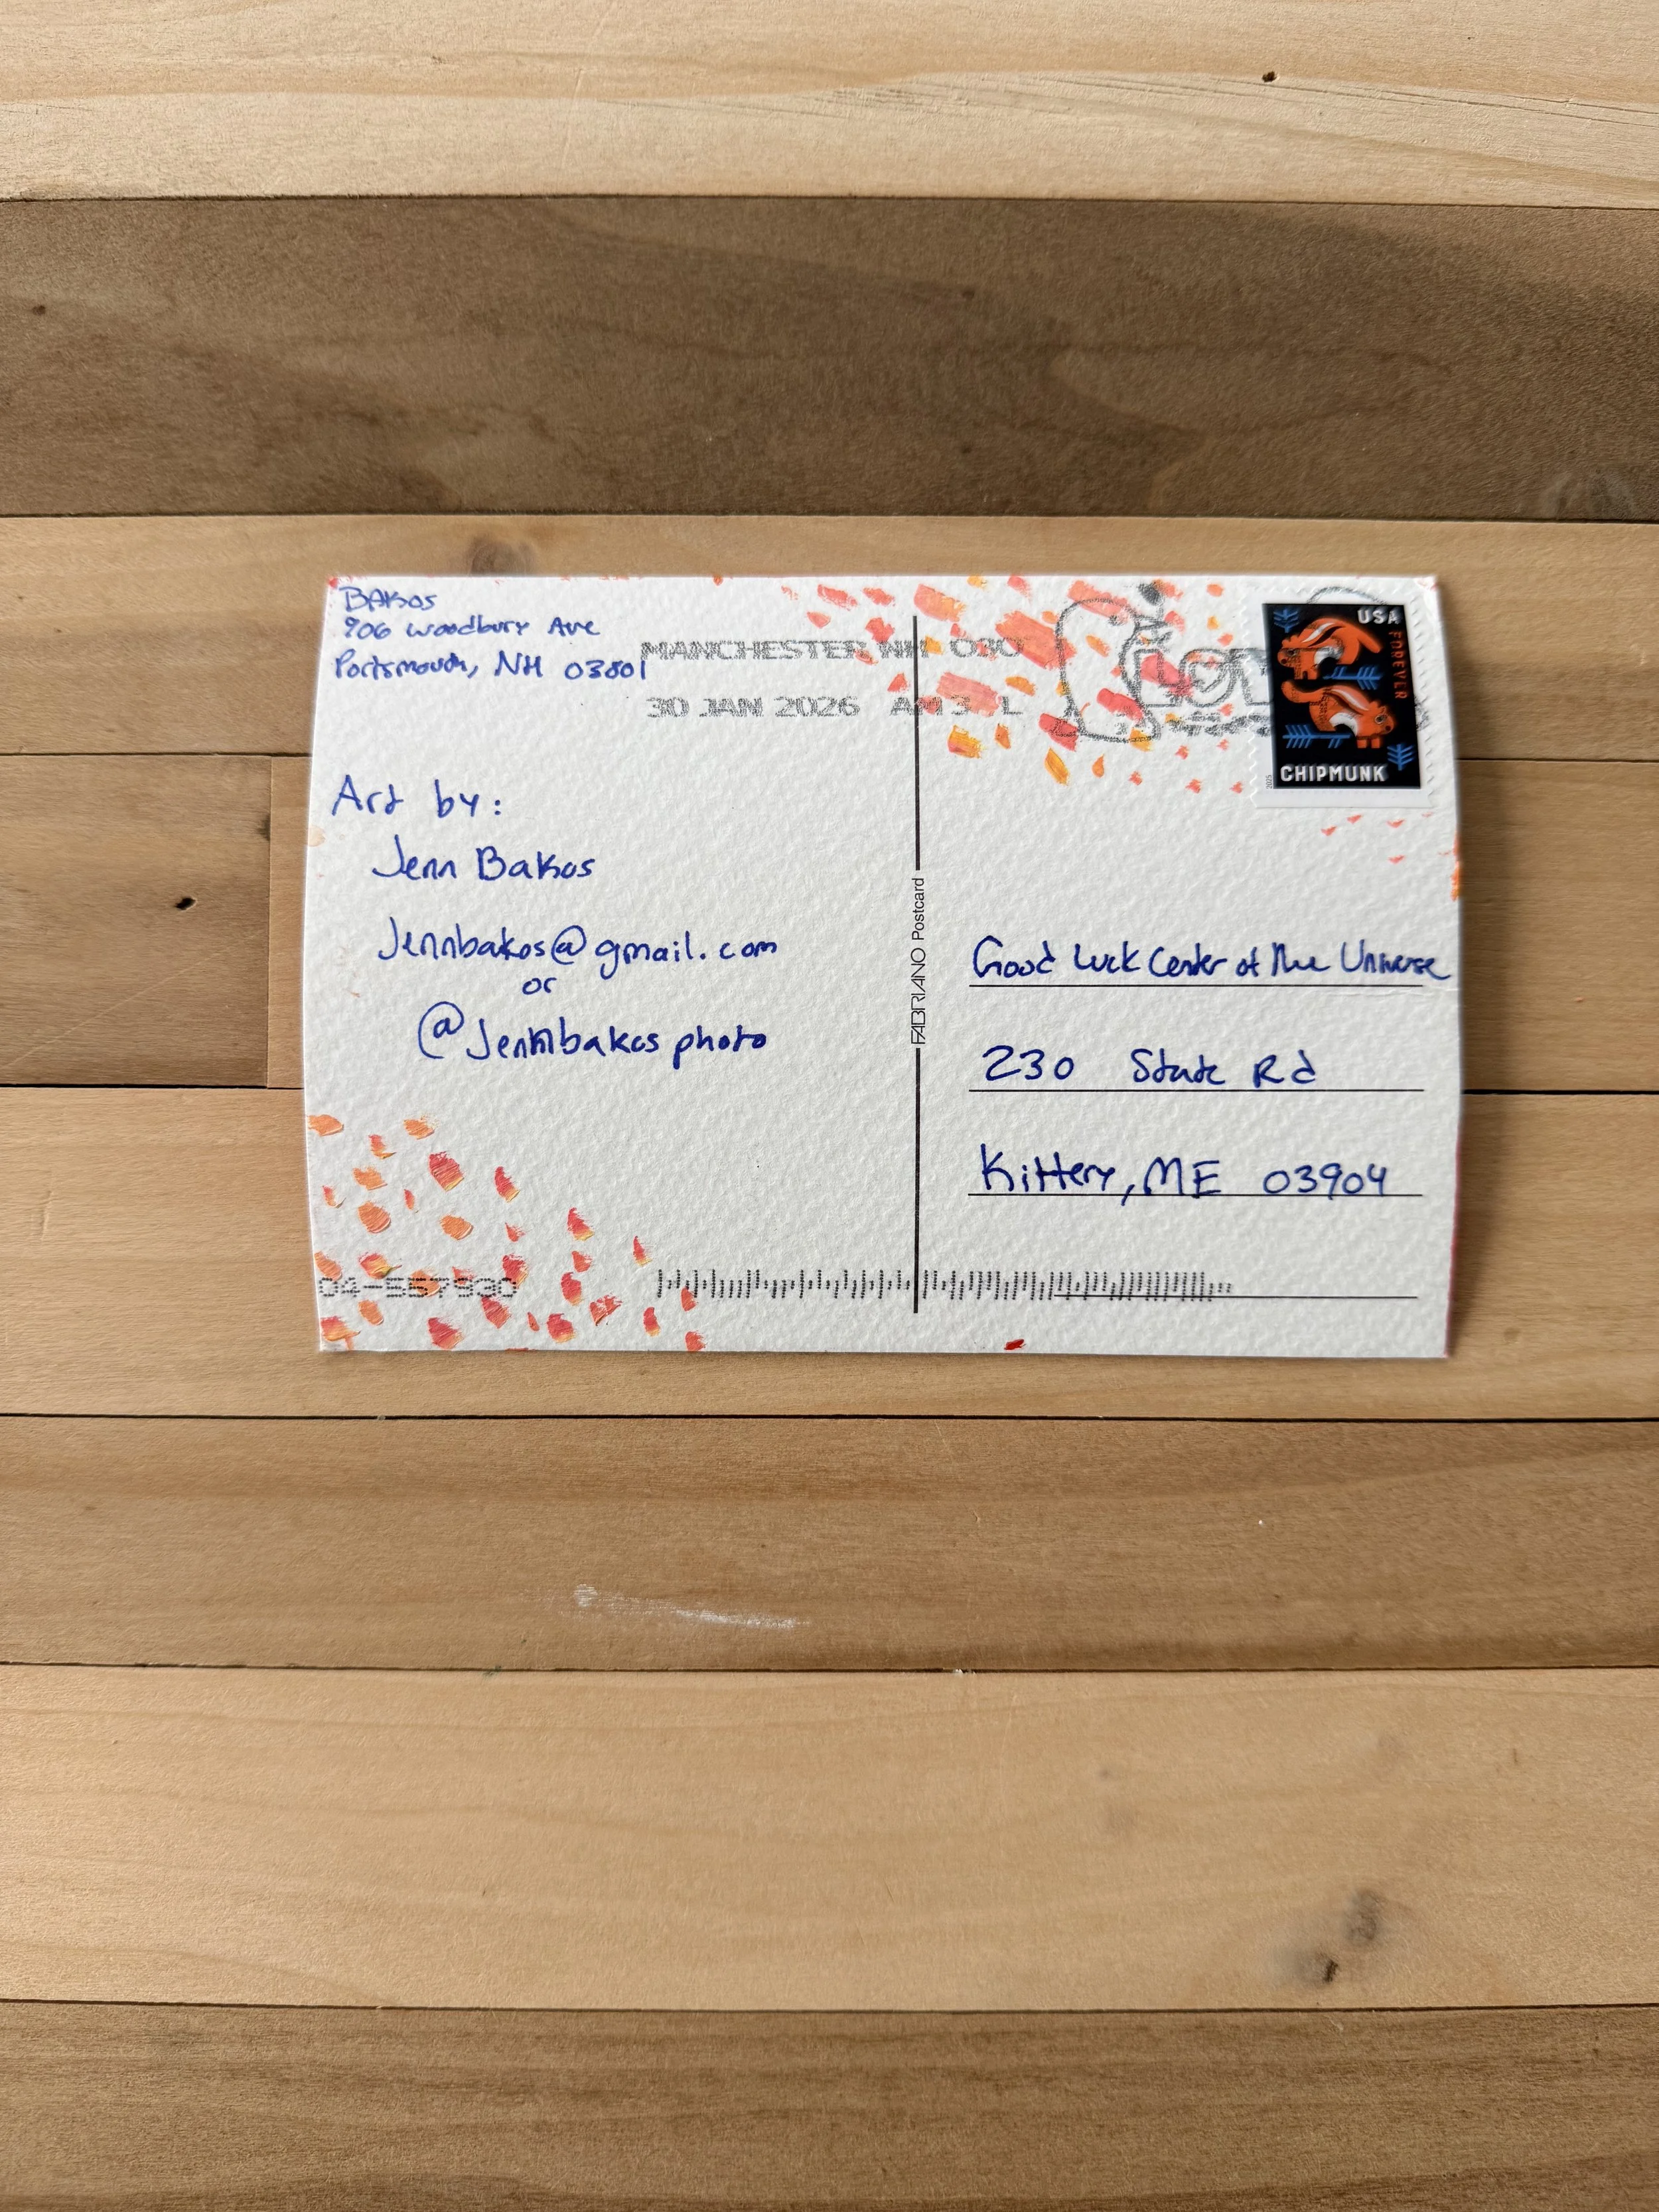 BAKOS
906 Woodbury Ave
Portsmouth, NH 03801
MANCHESTER NH 030
30 JAN 2026 AM 3 L
USA
FOREVER
2025
CHIPMUNK
Art by:
Jenn Bakos
Jennbakos@gmail.com
or
@Jennbakosphoto
FABRIANO Postcard
Good Luck Center of the Universe
230 State Rd
Kittery, ME 03904
04-557930